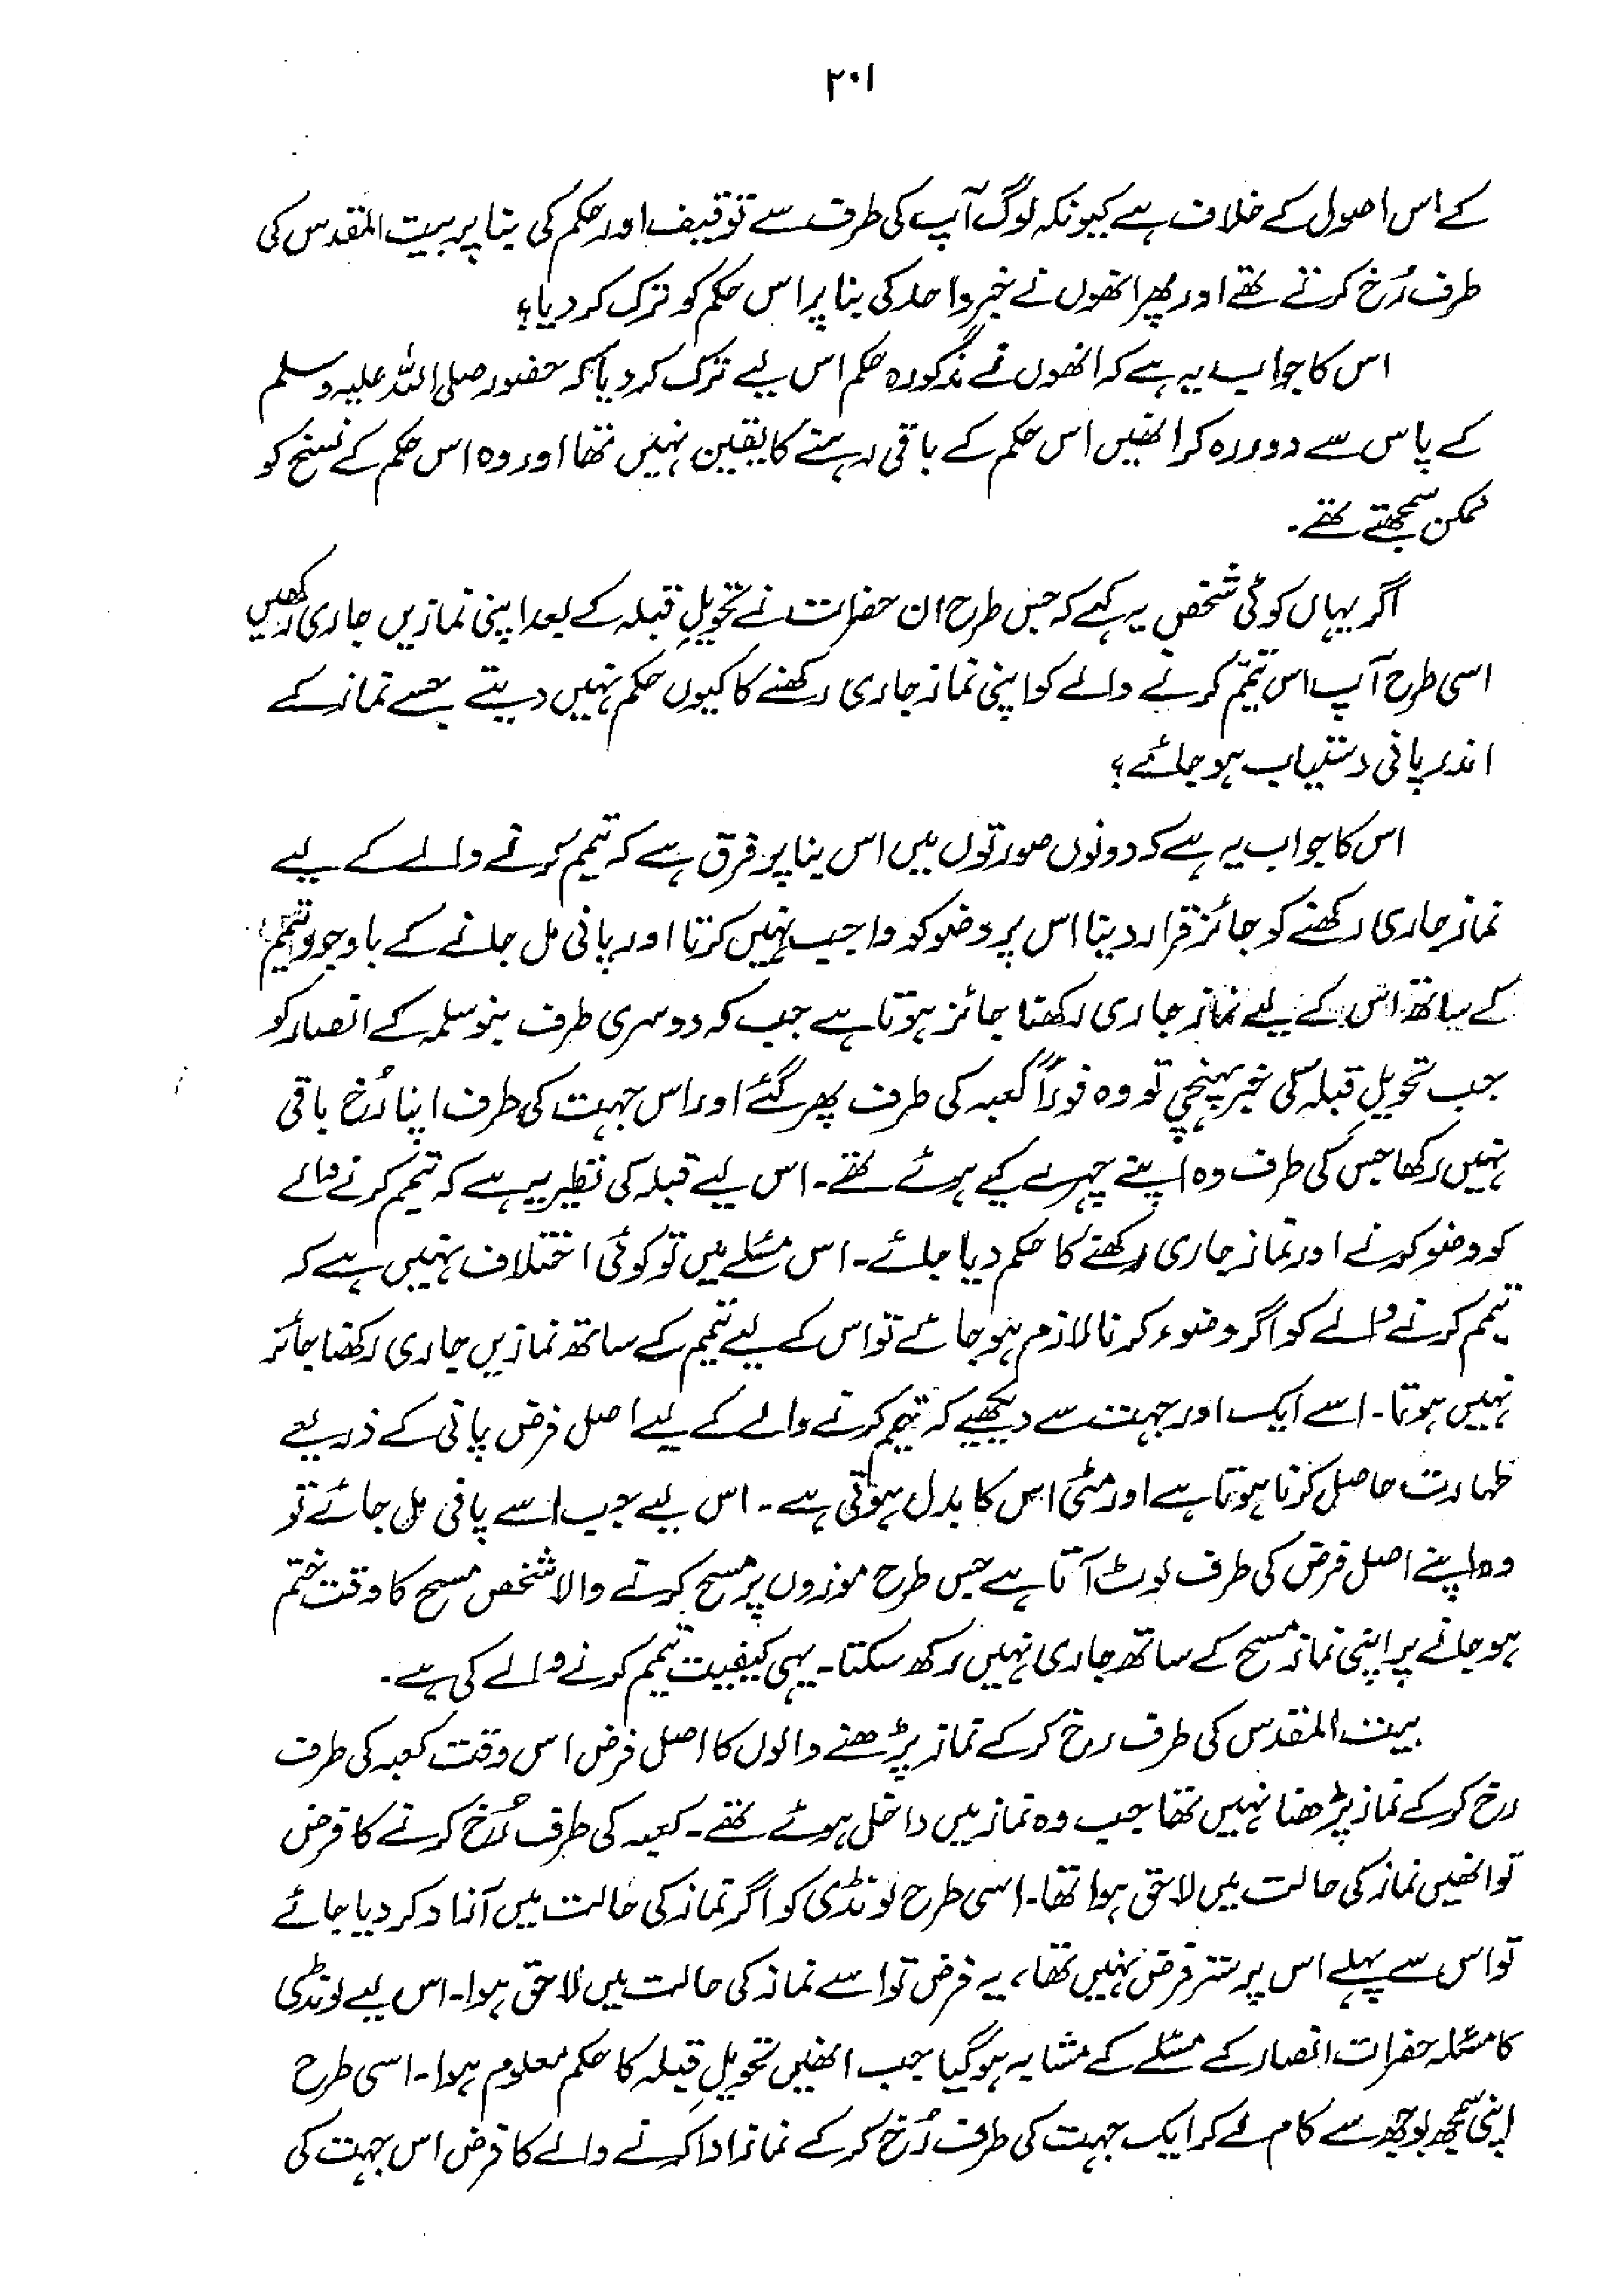 ۲۰۱
کے اس اصول کے خلاف ہے کیونکہ لوگ آپ کی طرف سے توقیف اور حکم کی بنا پر بیت المقدس کی
طرف رُخ کرتے تھے اور پھر انھوں نے خبر واحد کی بنا پر اس حکم کو ترک کر دیا؟
اس کا جواب یہ ہے کہ انھوں نے مذکورہ حکم اس لیے ترک کر دیا کہ حضور صلی اللہ علیہ وسلم
کے پاس سے دور رہ کر انھیں اس حکم کے باقی رہنے کا یقین نہیں تھا اور وہ اس حکم کے نسخ کو
ممکن سمجھتے تھے۔
اگر یہاں کوئی شخص یہ کہے کہ جس طرح ان حضرات نے تحویلِ قبلہ کے بعد اپنی نمازیں جاری رکھیں
اسی طرح آپ اس تیمّم کرنے والے کو اپنی نماز جاری رکھنے کا کیوں حکم نہیں دیتے جسے نماز کے
اندر پانی دستیاب ہو جائے؟
اس کا جواب یہ ہے کہ دونوں صورتوں میں اس بنا پر فرق ہے کہ تیمم کرنے والے کے لیے
نماز جاری رکھنے کو جائز قرار دینا اس پر وضو کو واجب نہیں کرتا اور پانی مل جانے کے باوجود تیمم
کے ساتھ اس کے لیے نماز جاری رکھنا جائز ہوتا ہے جب کہ دوسری طرف بنو سلمہ کے انصار کو
جب تحویلِ قبلہ کی خبر پہنچی تو وہ فوراً کعبہ کی طرف پھر گئے اور اس جہت کی طرف اپنا رُخ باقی
نہیں رکھا جس کی طرف وہ اپنے چہرے کیے ہوئے تھے۔ اس لیے قبلہ کی نظیر یہ ہے کہ تیمم کرنے والے
کو وضو کرنے اور نماز جاری رکھنے کا حکم دیا جائے۔ اس مسئلے میں تو کوئی اختلاف نہیں ہے کہ
تیمم کرنے والے کو اگر وضوء کرنا لازم ہو جائے تو اس کے لیے تیمم کے ساتھ نمازیں جاری رکھنا جائز
نہیں ہوتا۔ اسے ایک اور جہت سے دیکھیے کہ تیمم کرنے والے کے لیے اصل فرض پانی کے ذریعے
طہارت حاصل کرنا ہوتا ہے اور مٹی اس کا بدل ہوتی ہے۔ اس لیے جب اسے پانی مل جائے تو
وہ اپنے اصل فرض کی طرف لوٹ آتا ہے جس طرح موزوں پر مسح کرنے والا شخص مسح کا وقت ختم
ہو جانے پر اپنی نماز مسح کے ساتھ جاری نہیں رکھ سکتا۔ یہی کیفیت تیمم کرنے والے کی ہے۔
بیت المقدس کی طرف رخ کر کے نماز پڑھنے والوں کا اصل فرض اس وقت کعبہ کی طرف
رخ کر کے نماز پڑھنا نہیں تھا جب وہ نماز میں داخل ہوئے تھے۔ کعبہ کی طرف رُخ کرنے کا فرض
تو انھیں نماز کی حالت میں لاحق ہوا تھا۔ اسی طرح لونڈی کو اگر نماز کی حالت میں آزاد کر دیا جائے
تو اس سے پہلے اس پر ستر فرض نہیں تھا، یہ فرض تو اسے نماز کی حالت میں لاحق ہوا۔ اس لیے لونڈی
کا مسئلہ حضرات انصار کے مسئلے کے مشابہ ہو گیا جب انھیں تحویلِ قبلہ کا حکم معلوم ہوا۔ اسی طرح
اپنی سمجھ بوجھ سے کام لے کر ایک جہت کی طرف رُخ کر کے نماز ادا کرنے والے کا فرض اس جہت کی